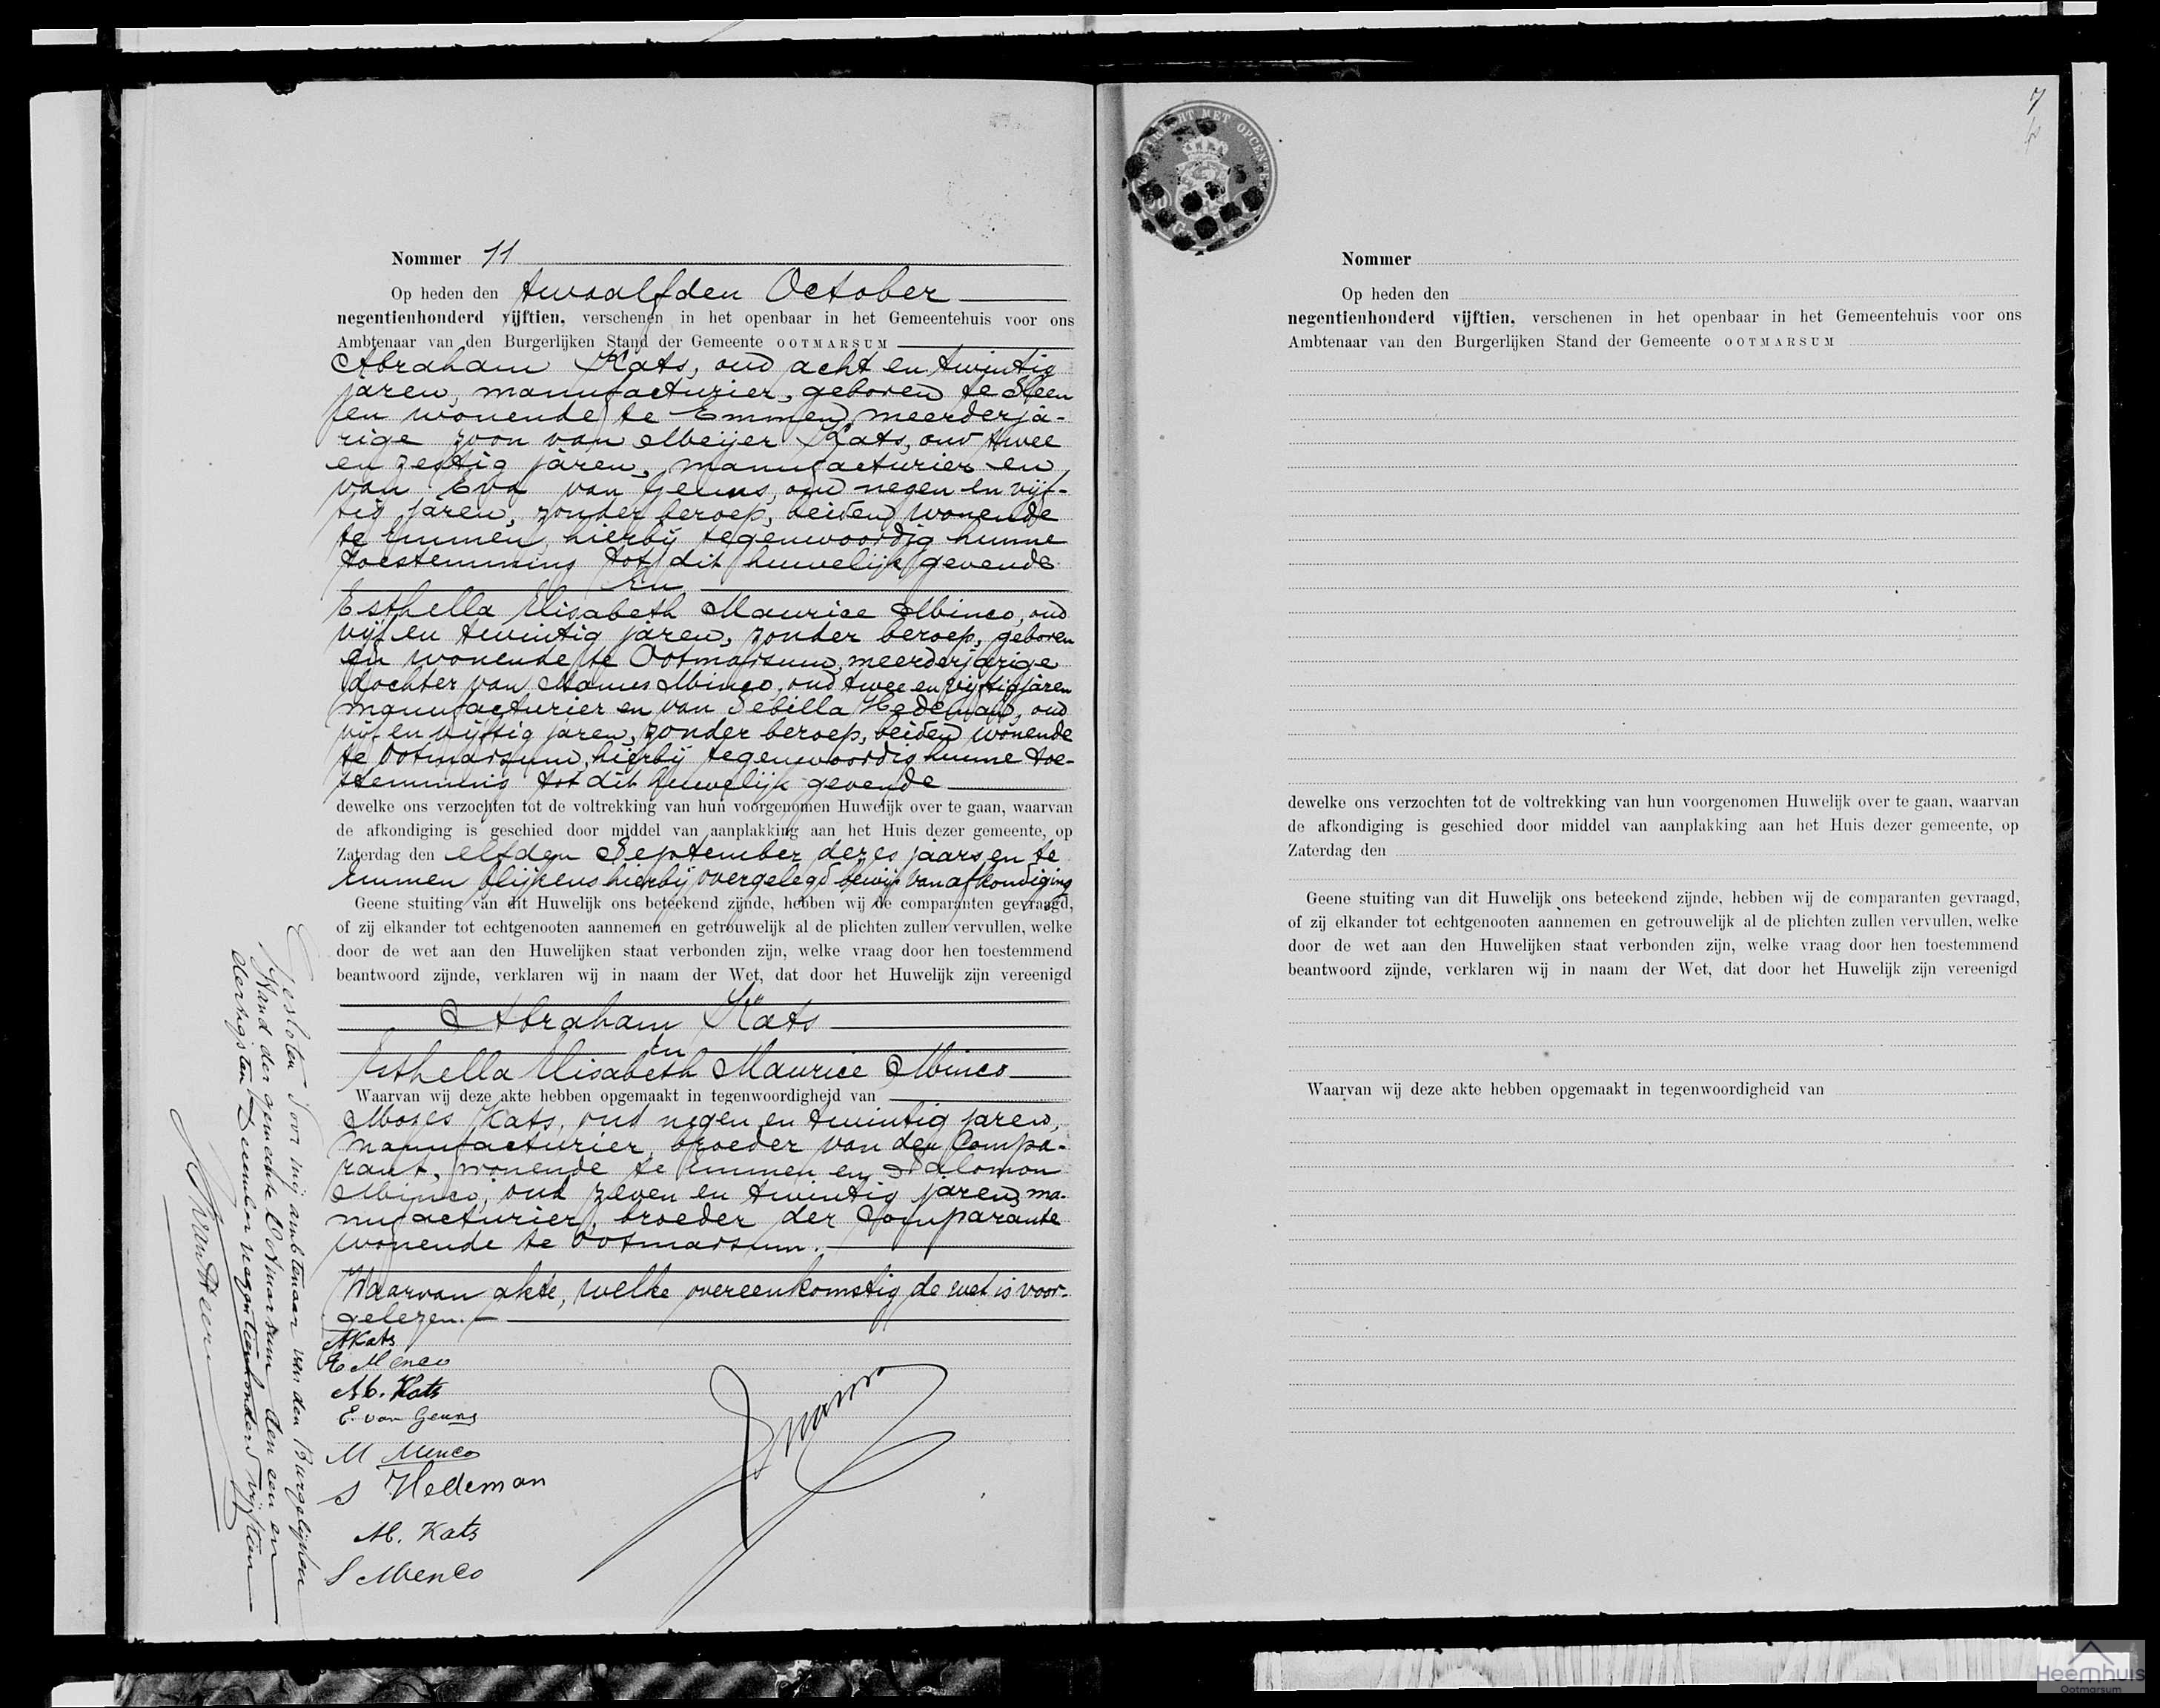 Nommer 11
Op heden den twaalfden October
negentienhonderd vijftien, verschenen in het openbaar in het Gemeentehuis voor ons
Ambtenaar van den Burgerlijken Stand der Gemeente OOTMARSUM
Abraham Kats, oud acht en twintig
jaren, manufacturier, geboren te Sleen
en wonende te Emmen, meerderja-
rige zoon van Meijer Kats, oud twee
en zestig jaren, manufacturier en
van Eva van Geuns, oud negen en vijf-
tig jaren, zonder beroep, beiden wonende
te Emmen, hierbij tegenwoordig hunne
toestemming tot dit huwelijk gevende
En
Esthella Elisabeth Maurice Minco, oud
vijf en twintig jaren, zonder beroep, geboren
en wonende te Ootmarsum, meerderjarige
dochter van Manus Minco, oud twee en vijftig jaren
manufacturier en van Sebilla Hedeman, oud
vijf en vijftig jaren, zonder beroep, beiden wonende
te Ootmarsum, hierbij tegenwoordig hunne toe-
stemming tot dit huwelijk gevende
dewelke ons verzochten tot de voltrekking van hun voorgenomen Huwelijk over te gaan, waarvan
de afkondiging is geschied door middel van aanplakking aan het Huis dezer gemeente, op
Zaterdag den elfden September dezes jaars en te
Emmen blijkens hierbij overgelegd bewijs van afkondiging
Geene stuiting van dit Huwelijk ons beteekend zijnde, hebben wij de comparanten gevraagd,
of zij elkander tot echtgenooten aannemen en getrouwelijk al de plichten zullen vervullen, welke
door de wet aan den Huwelijken staat verbonden zijn, welke vraag door hen toestemmend
beantwoord zijnde, verklaren wij in naam der Wet, dat door het Huwelijk zijn vereenigd
Abraham Kats
en
Esthella Elisabeth Maurice Minco
Waarvan wij deze akte hebben opgemaakt in tegenwoordigheid van
Mozes Kats, oud negen en twintig jaren,
manufacturier, broeder van den Compa-
rant, wonende te Emmen en Salomon
Minco, oud zeven en twintig jaren, ma-
nufacturier, broeder der Comparante
wonende te Ootmarsum.
Waarvan akte, welke overeenkomstig de wet is voor-
gelezen.
A Kats
E Menco
M. Kats
E. van Geuns
M Menco
S Hedeman
M. Kats
S Menco
Gesloten door mij ambtenaar van den Burgelijken
Stand der gemeente Ootmarsum den een en
dertigsten December negentienhonderd vijftien
7
ZEGELRECHT MET OPCENTEN
50
Nommer
Op heden den
negentienhonderd vijftien, verschenen in het openbaar in het Gemeentehuis voor ons
Ambtenaar van den Burgerlijken Stand der Gemeente OOTMARSUM
dewelke ons verzochten tot de voltrekking van hun voorgenomen Huwelijk over te gaan, waarvan
de afkondiging is geschied door middel van aanplakking aan het Huis dezer gemeente, op
Zaterdag den
Geene stuiting van dit Huwelijk ons beteekend zijnde, hebben wij de comparanten gevraagd,
of zij elkander tot echtgenooten aannemen en getrouwelijk al de plichten zullen vervullen, welke
door de wet aan den Huwelijken staat verbonden zijn, welke vraag door hen toestemmend
beantwoord zijnde, verklaren wij in naam der Wet, dat door het Huwelijk zijn vereenigd
Waarvan wij deze akte hebben opgemaakt in tegenwoordigheid van
Heemhuis
Ootmarsum